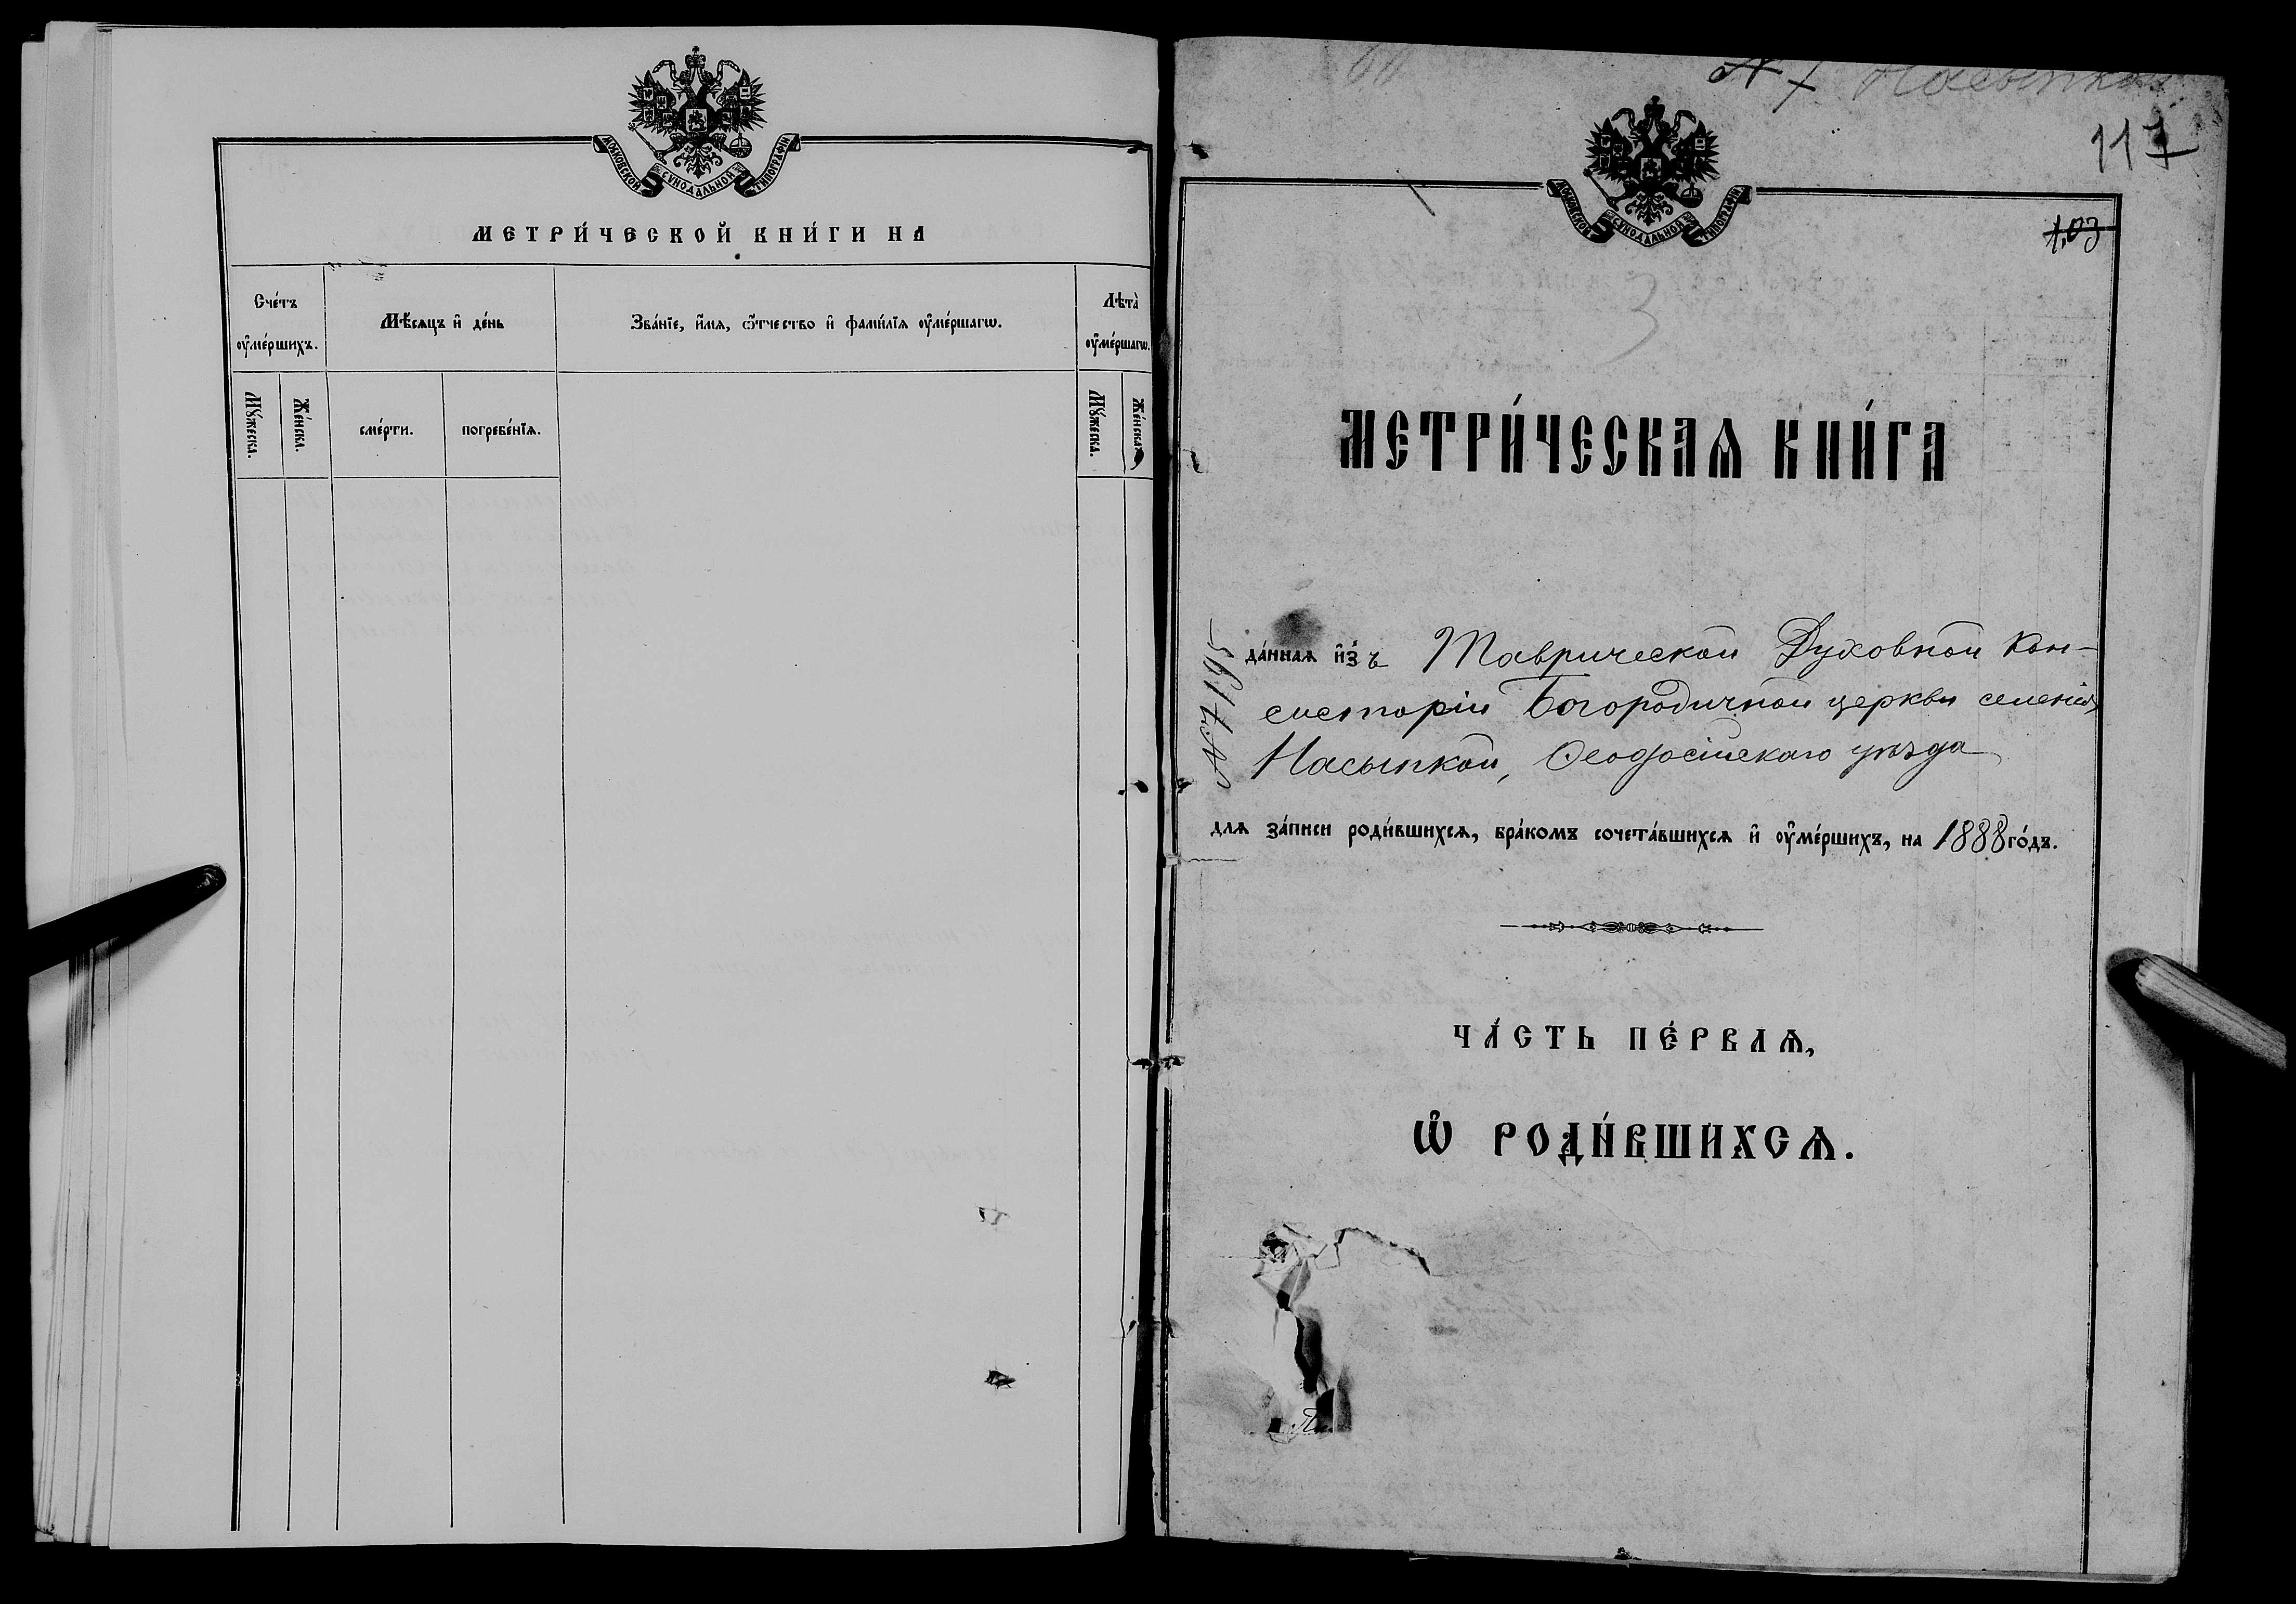 МОСКОВСКОЙ СѴНОДАЛЬНОЙ ТИПОГРАФІИ
МЕТРИ́ЧЕСКОЙ КНИ́ГИ НА
Сче́тъ
ᲂу҆ме́ршихъ.
Мѣ́сяцъ и҆ де́нь
Зва́нїе, и҆́мѧ, ѻ҆́тчество и҆ фами́лїѧ ᲂу҆ме́ршагѡ.
Лѣта̀
ᲂу҆ме́ршагѡ.
Мꙋ́жеска.
Же́нска.
сме́рти.
погребе́нїѧ.
Мꙋ́жеска.
Же́нска.
Насыпкой
117
МОСКОВСКОЙ СѴНОДАЛЬНОЙ ТИПОГРАФІИ
103
3
МЕТРИ́ЧЕСКАѦ КНИ́ГА
№ 7195
да́ннаѧ и҆зъ Таврической Духовной Кон-
систоріи Богородичной церкви селенія
Насыпкой, Ѳеодосійскаго уѣзда
длѧ за́писи роди́вшихсѧ, бра́комъ сочета́вшихсѧ и҆ ᲂу҆ме́ршихъ, на 1888 го́дъ.
ЧА́СТЬ ПЕ́РВАѦ,
Ѡ҆ РОДИ́ВШИХСѦ.